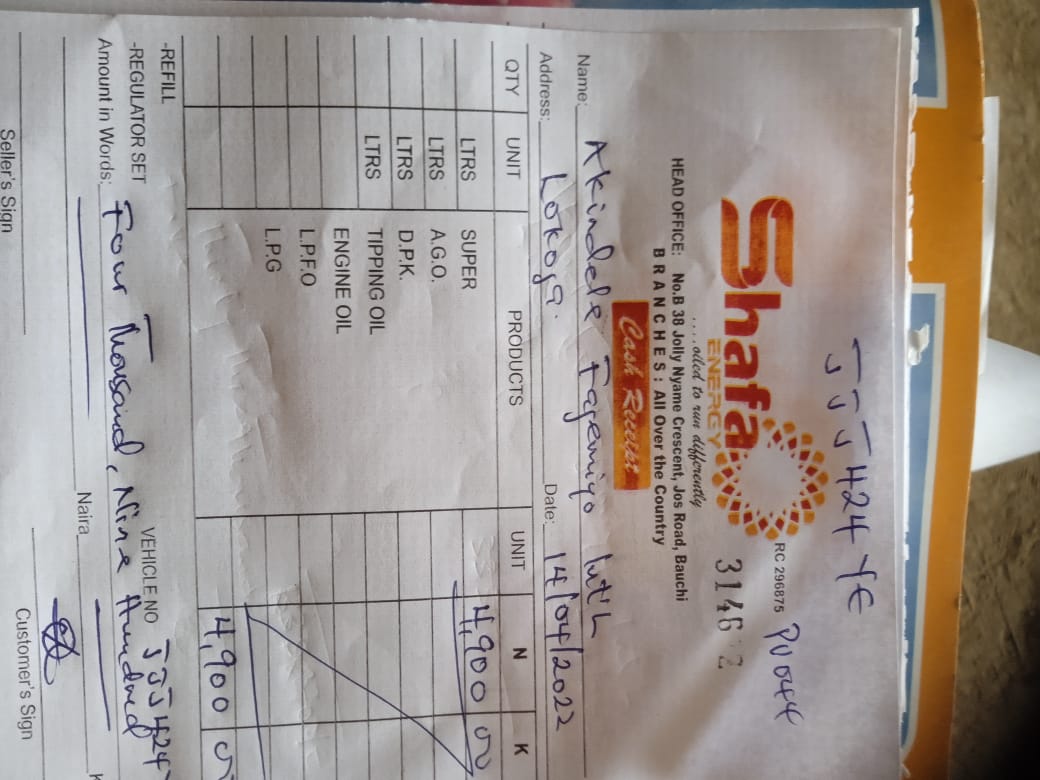 JJJ424YE
RC 296875 PV044
Shafa
ENERGY
....oiled to run differently
HEAD OFFICE: No.B 38 Jolly Nyame Crescent, Jos Road, Bauchi
BRANCHES: All Over the Country
Cash Receipt
Name: Akindele Int'L
Address: Lokoja. Date: 14/04/2022
QTY UNIT PRODUCTS UNIT N K
LTRS SUPER 4,900 00
LTRS A.G.O.
LTRS D.P.K.
LTRS TIPPING OIL
ENGINE OIL
L.P.F.O
L.P.G
4,900 00
-REFILL
-REGULATOR SET VEHICLE NO JJJ424
Amount in Words: Four Thousand, Nine Hundred
Naira K
Seller's Sign Customer's Sign